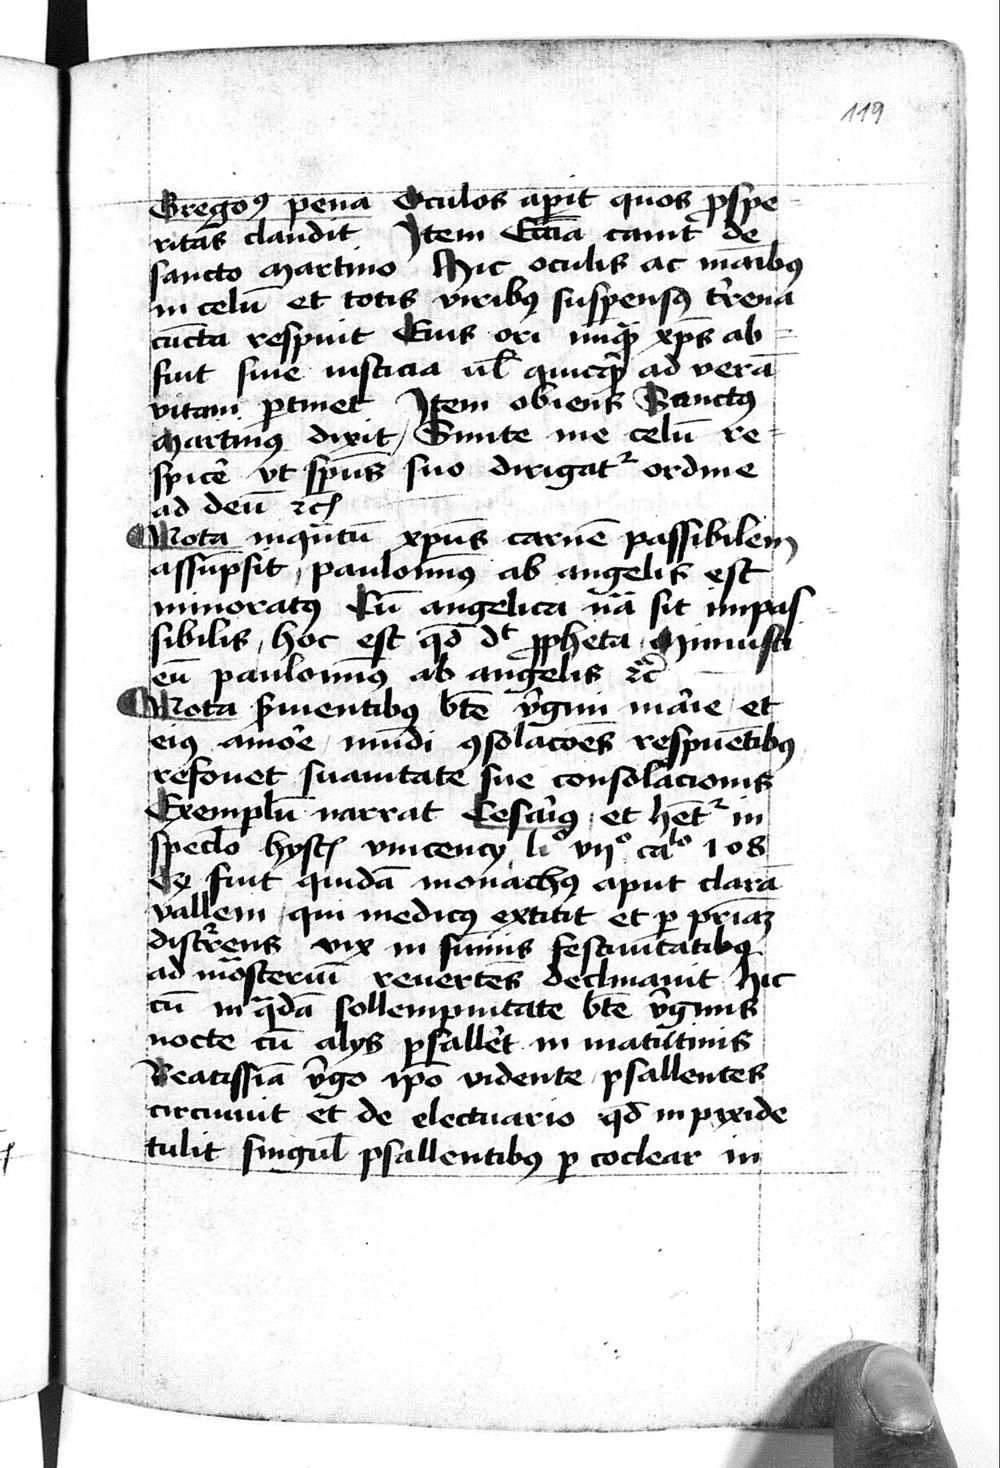 119
Gregoꝰ pena Oculos aperit quos ꝓspe-
ritas claudit Item Eccia canit de
sancto Martino Hic oculis ac manibꝰ
in celū et totis viribꝰ suspensꝰ tͬrena
cūcta respuit Eius ori nūꝗ xp̄s ab=
fuit siue iusticia ul̄ quicꝗ ad verā
vitam ꝑtinet Item obiens Sanctꝰ
Martinꝰ dixit / Sinite me celū re=
spicer̄ vt sp̄us suo dirigat² ordine
ad deū ⁊cꝭ
Nota inqͣntū xp̄us carnē passibilem
assūpsit / paulominꝰ ab angelis est
minoratꝰ Cū angelica nͣa sit impas
sibilis / hoc est qd̄ dt ꝓpheta Minuisti
eū paulominꝰ ab angelis ⁊c̄
Nota ẜuientibꝰ bt̄e v̄gini mar̄ie / et
eiꝰ amor̄e / mūdi ꝯsolacōes respuētibꝰ
refouet suauitate sue consolacionis
Exemplū narrat Cesar̄iꝰ / et hēt² in
speclo hystꝭ vincency li° vij° cal° 108
fuit quidā monachꝰ aput clarā
vallem / qui medicꝰ extitit et ꝑ
discͬrens vix in sūmis festiuitatibꝰ
ad mōsteriū reuertēs declinauit / hic
cū in qͣdā sollempnitate bt̄e v̄ginis
nocte cū alijs psaller̄t in matutinis
Beatissīa v̄go ip̄o vidente / psallentes
circuiuit et de electuario qd̄ in pixide
tulit singul̄ psallentibꝰ ꝑ coclear in